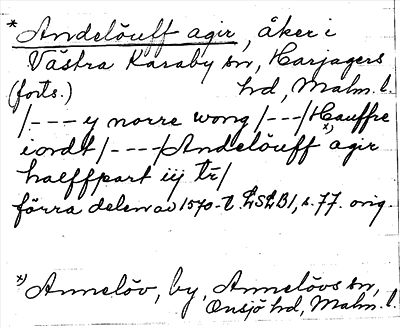 * Andelöuff agir, åker i
Västra Karaby sn, Harjagers
(forts.) hd, Malm. l.
/--- y norre wong /---/ Hauffre
iordt /----/ Andelöuff x) agir
halffpart iij tr/
förra delen av 1570-t. LSLB1, s. 77. orig.
x) Annelöv, by, Annelövs sn,
Onsjö hd, Malm. l.